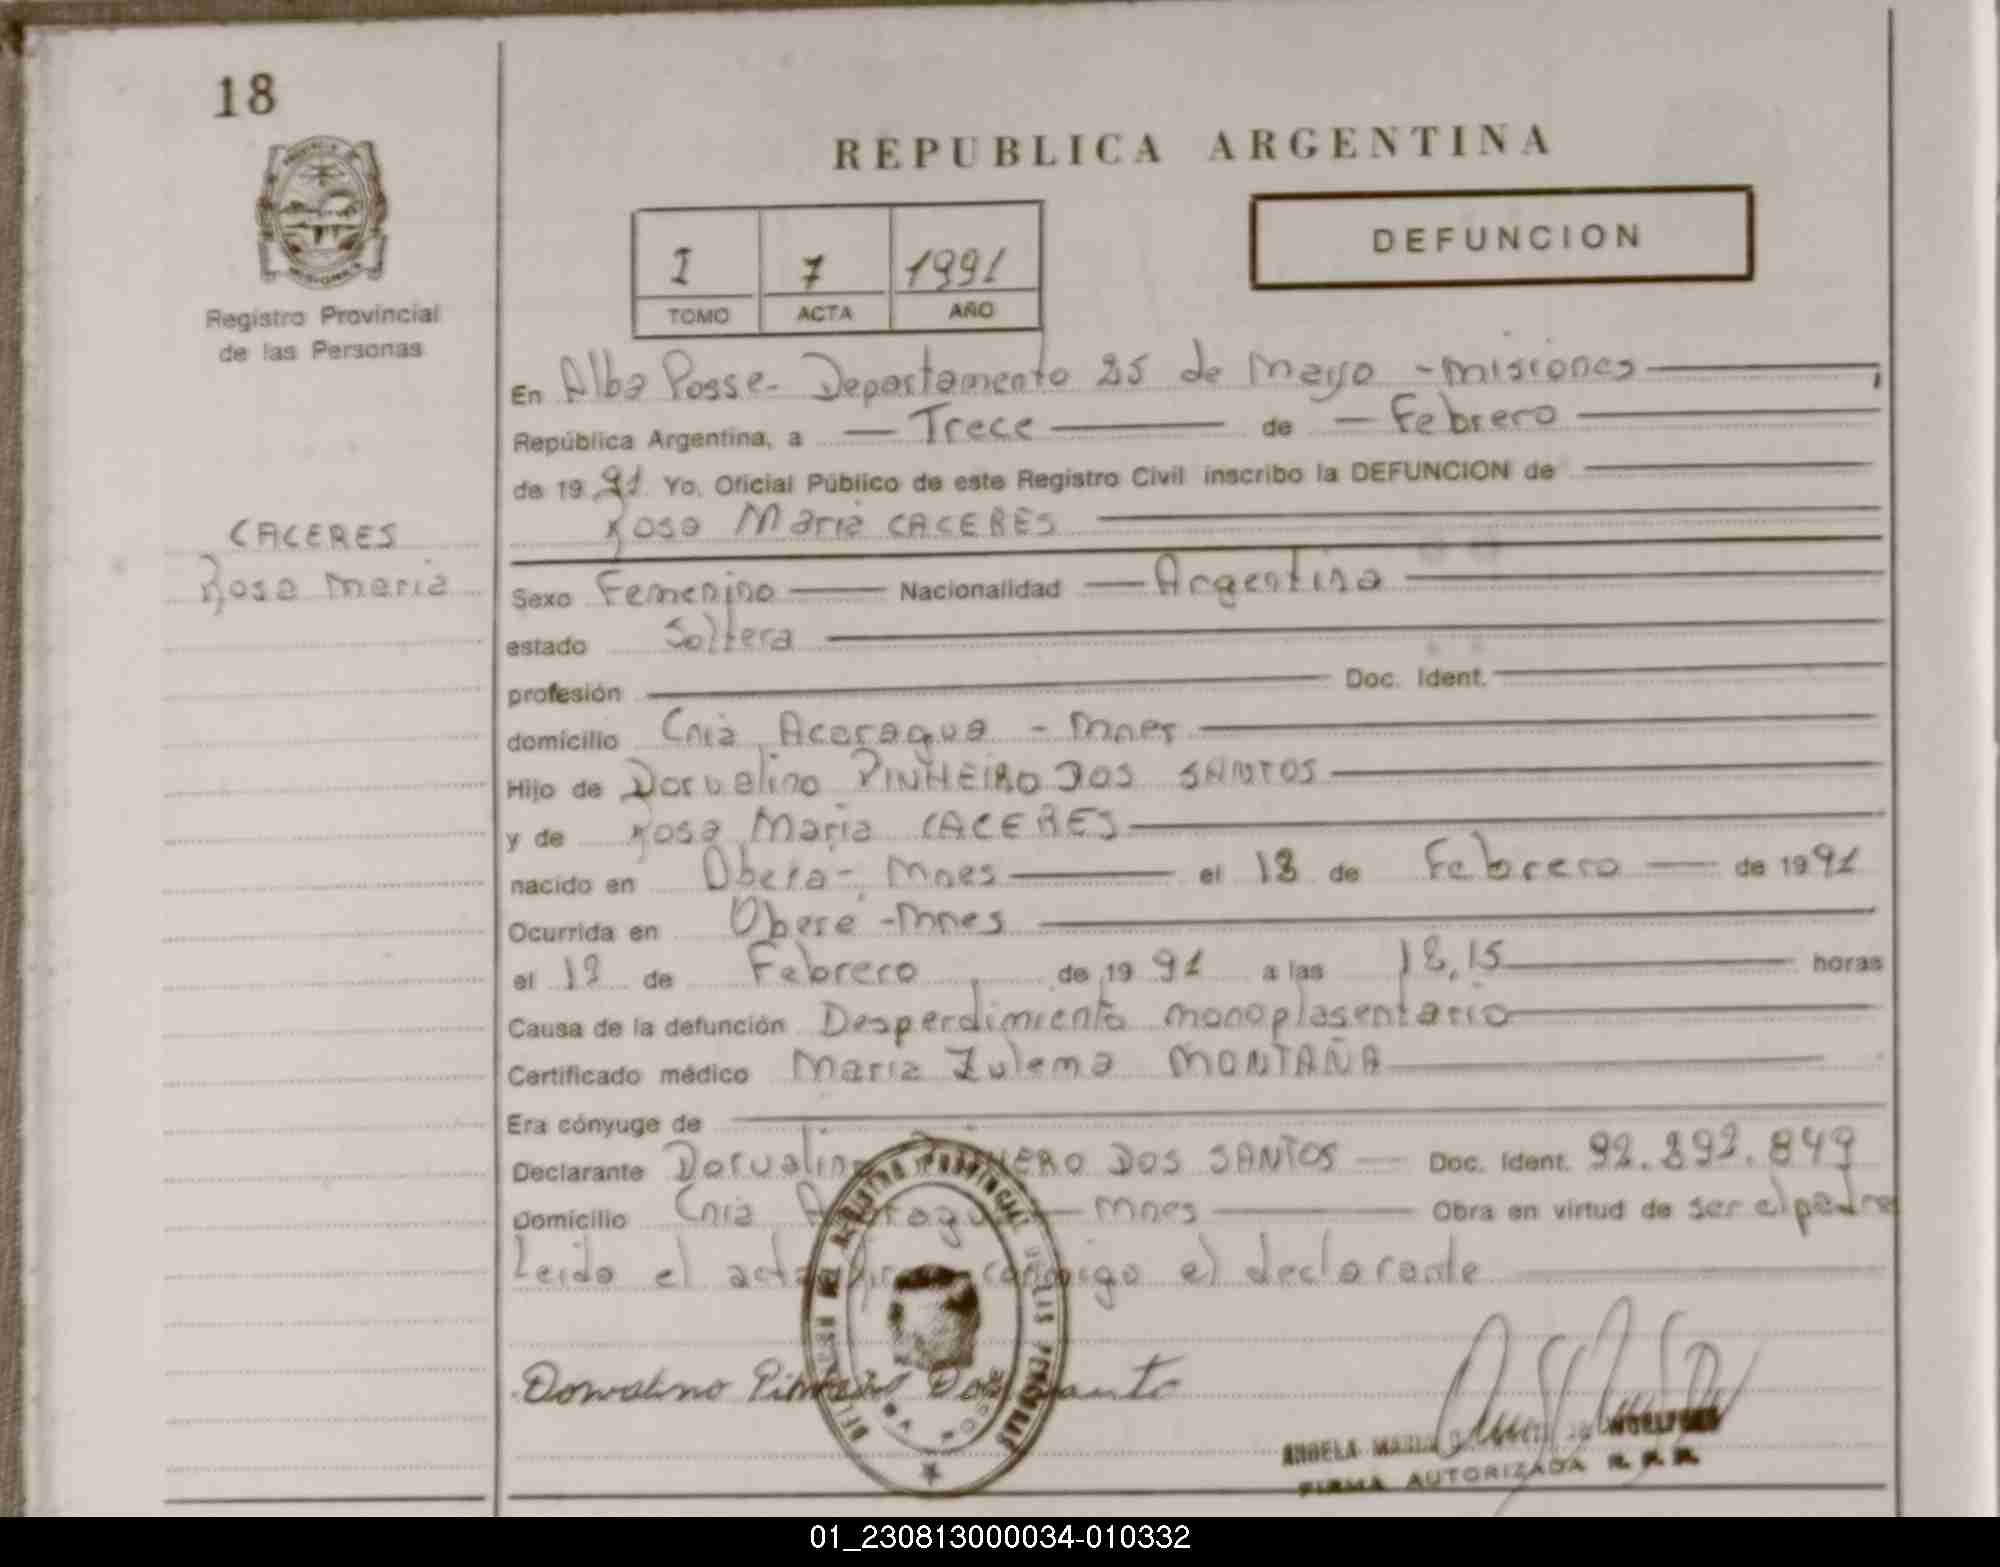 18
REPUBLICA ARGENTINA
DEFUNCION
I 7 1991
TOMO ACTA AÑO
Registro Provincial
de las Personas
En Alba Posse - Departamento 25 de Mayo - Misiones
República Argentina, a Trece de Febrero
de 1991 Yo, Oficial Público de este Registro Civil inscribo la DEFUNCION de
Rosa Maria CACERES
CACERES
Rosa Maria
Sexo Femenino Nacionalidad Argentina
estado Soltera
profesión Doc. Ident.
domicilio Cnia Acaragua - Mnes
Hijo de Dorvalino PINHEIRO DOS SANTOS
y de Rosa Maria CACERES
nacido en Oberá - Mnes el de Febrero de 1991
Ocurrida en Oberá - Mnes
el de Febrero de 1991 a las horas
Causa de la defunción Desperdimiento monoplasentario
Certificado médico Maria Zulema MONTAÑA
Era cónyuge de
Declarante Dorvalino DOS SANTOS Doc. Ident.
Domicilio Cnia Mnes Obra en virtud de ser el padre
Leida el acta conmigo el declarante
Dorvalino Dos
ANGELA MARIA
FIRMA AUTORIZADA R. P. P.
01_230813000034-010332